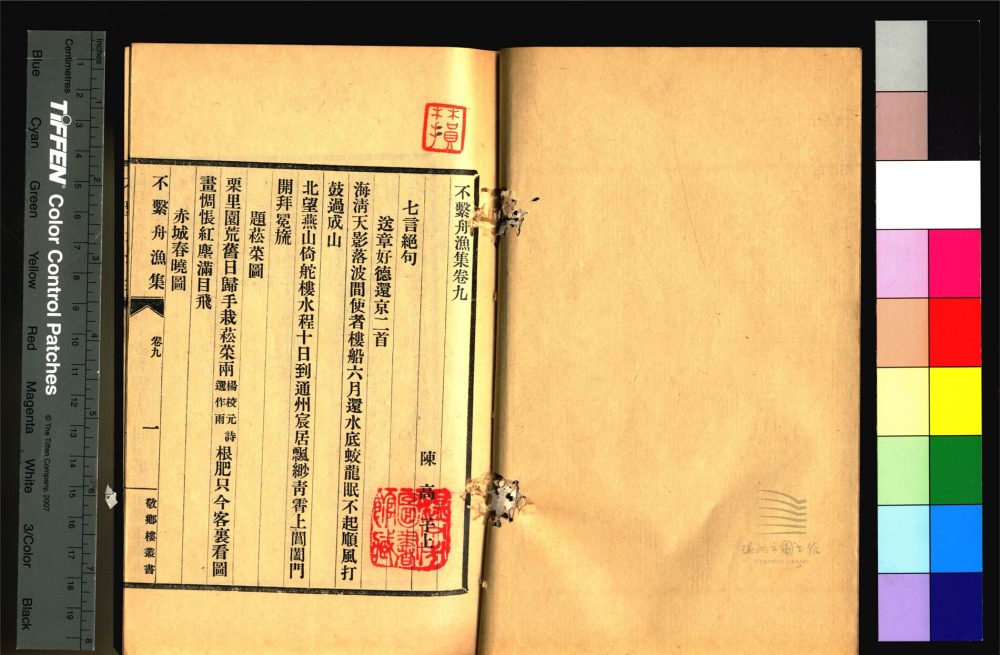 不繫舟漁集卷九
陳高
上
七言絕句
送章好德還京二首
海清天影落波間使者樓船六月還水底蛟龍眠不起順風打
鼓過成山
北望燕山倚舵樓水程十日到通州宸居飄緲青霄上閶闔門
開拜冕旒
題菘菜圖
栗里園荒舊日歸手栽菘菜兩楊校元詩選作雨根肥只今客裏看圖
畫惆悵紅塵滿目飛
赤城春曉圖
不繫舟漁集
卷九
一
敬鄉樓叢書
溫州市圖書館
WENZHOU LIBRARY
Inches
Centimetres
TIFFEN® Color Control Patches
© The Tiffen Company, 2007
Blue Cyan Green Yellow Red Magenta White 3/Color Black
1 2 3 4 5 6 7 8
1 2 3 4 5 6 7 8 9 10 11 12 13 14 15 16 17 18 19